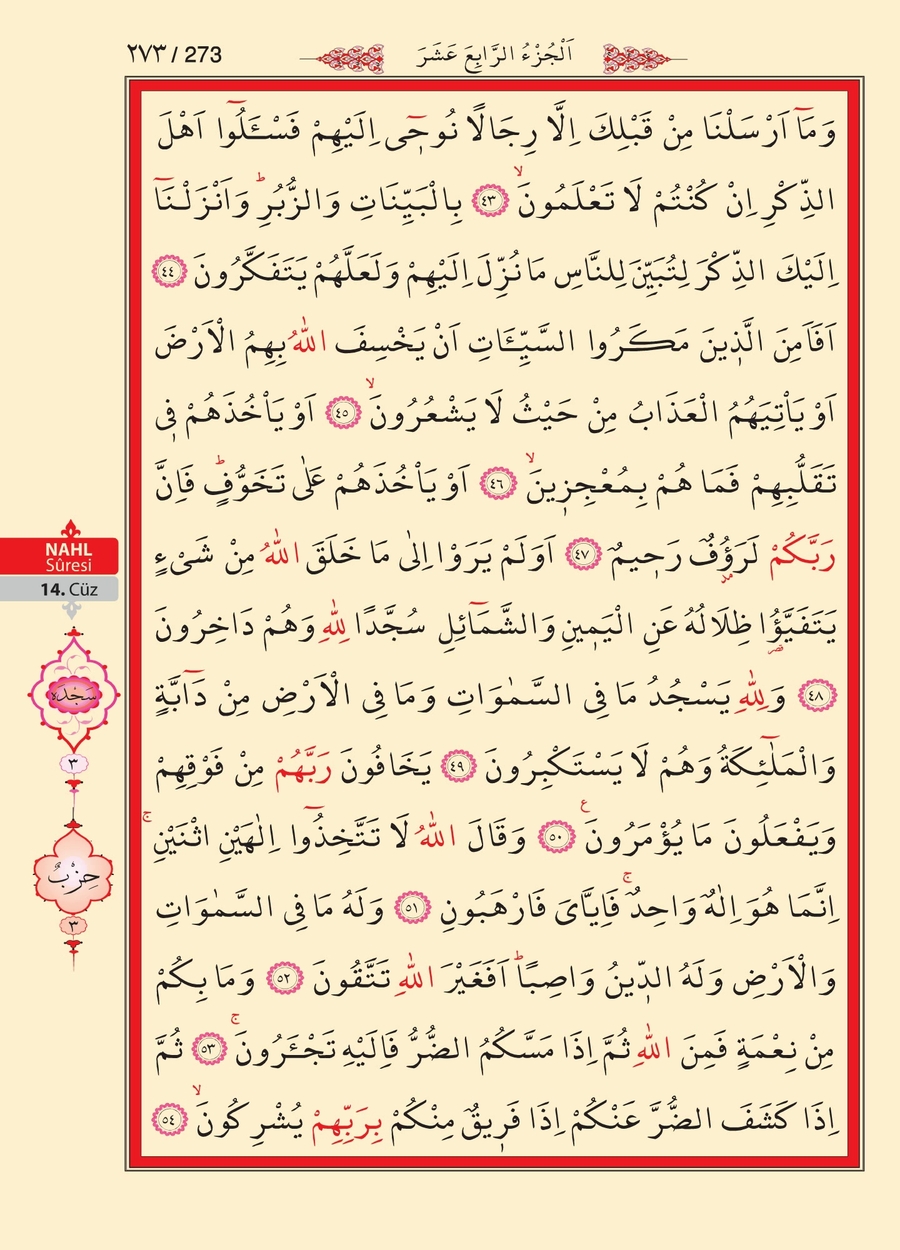 ٢٧٣ / 273
اَلْجُزْءُ الرَّابِعَ عَشَرَ
وَمَٓا اَرْسَلْنَا مِنْ قَبْلِكَ اِلَّا رِجَالًا نُوح۪ٓى اِلَيْهِمْ فَسْـَٔلُٓوا اَهْلَ
الذِّكْرِ اِنْ كُنْتُمْ لَا تَعْلَمُونَۙ ﴿٤٣﴾ بِالْبَيِّنَاتِ وَالزُّبُرِۜ وَاَنْزَلْنَٓا
اِلَيْكَ الذِّكْرَ لِتُبَيِّنَ لِلنَّاسِ مَا نُزِّلَ اِلَيْهِمْ وَلَعَلَّهُمْ يَتَفَكَّرُونَ ﴿٤٤﴾
اَفَاَمِنَ الَّذ۪ينَ مَكَرُوا السَّيِّـَٔاتِ اَنْ يَخْسِفَ اللّٰهُ بِهِمُ الْاَرْضَ
اَوْ يَاْتِيَهُمُ الْعَذَابُ مِنْ حَيْثُ لَا يَشْعُرُونَۙ ﴿٤٥﴾ اَوْ يَاْخُذَهُمْ ف۪ى
تَقَلُّبِهِمْ فَمَا هُمْ بِمُعْجِز۪ينَۙ ﴿٤٦﴾ اَوْ يَاْخُذَهُمْ عَلٰى تَخَوُّفٍۜ فَاِنَّ
رَبَّكُمْ لَرَؤُ۫فٌ رَح۪يمٌ ﴿٤٧﴾ اَوَلَمْ يَرَوْا اِلٰى مَا خَلَقَ اللّٰهُ مِنْ شَىْءٍ
يَتَفَيَّؤُ۬ا ظِلَالُهُ عَنِ الْيَم۪ينِ وَالشَّمَٓائِلِ سُجَّدًا لِلّٰهِ وَهُمْ دَاخِرُونَ
﴿٤٨﴾ وَلِلّٰهِ يَسْجُدُ مَا فِى السَّمٰوَاتِ وَمَا فِى الْاَرْضِ مِنْ دَٓابَّةٍ
وَالْمَلٰٓئِكَةُ وَهُمْ لَا يَسْتَكْبِرُونَ ﴿٤٩﴾ يَخَافُونَ رَبَّهُمْ مِنْ فَوْقِهِمْ
وَيَفْعَلُونَ مَا يُؤْمَرُونَ ع ﴿٥٠﴾ وَقَالَ اللّٰهُ لَا تَتَّخِذُٓوا اِلٰهَيْنِ اثْنَيْنِۚ
اِنَّمَا هُوَ اِلٰهٌ وَاحِدٌۚ فَاِيَّاىَ فَارْهَبُونِ ﴿٥١﴾ وَلَهُ مَا فِى السَّمٰوَاتِ
وَالْاَرْضِ وَلَهُ الدّ۪ينُ وَاصِبًاۜ اَفَغَيْرَ اللّٰهِ تَتَّقُونَ ﴿٥٢﴾ وَمَا بِكُمْ
مِنْ نِعْمَةٍ فَمِنَ اللّٰهِ ثُمَّ اِذَا مَسَّكُمُ الضُّرُّ فَاِلَيْهِ تَجْـَٔرُونَۚ ﴿٥٣﴾ ثُمَّ
اِذَا كَشَفَ الضُّرَّ عَنْكُمْ اِذَا فَر۪يقٌ مِنْكُمْ بِرَبِّهِمْ يُشْرِكُونَۙ ﴿٥٤﴾
NAHL
Sûresi
14. Cüz
سَجْدَه
٣
حِزْبٌ
٣